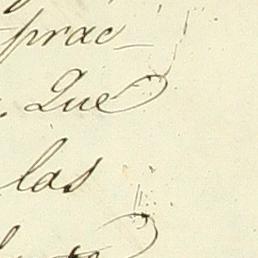 prac-
Que
las